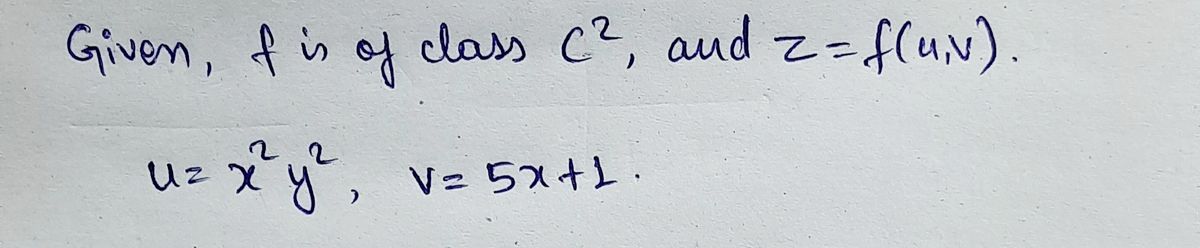 Given, f is of class C², and z=f(u,v).
u= x²y², v= 5x+1.